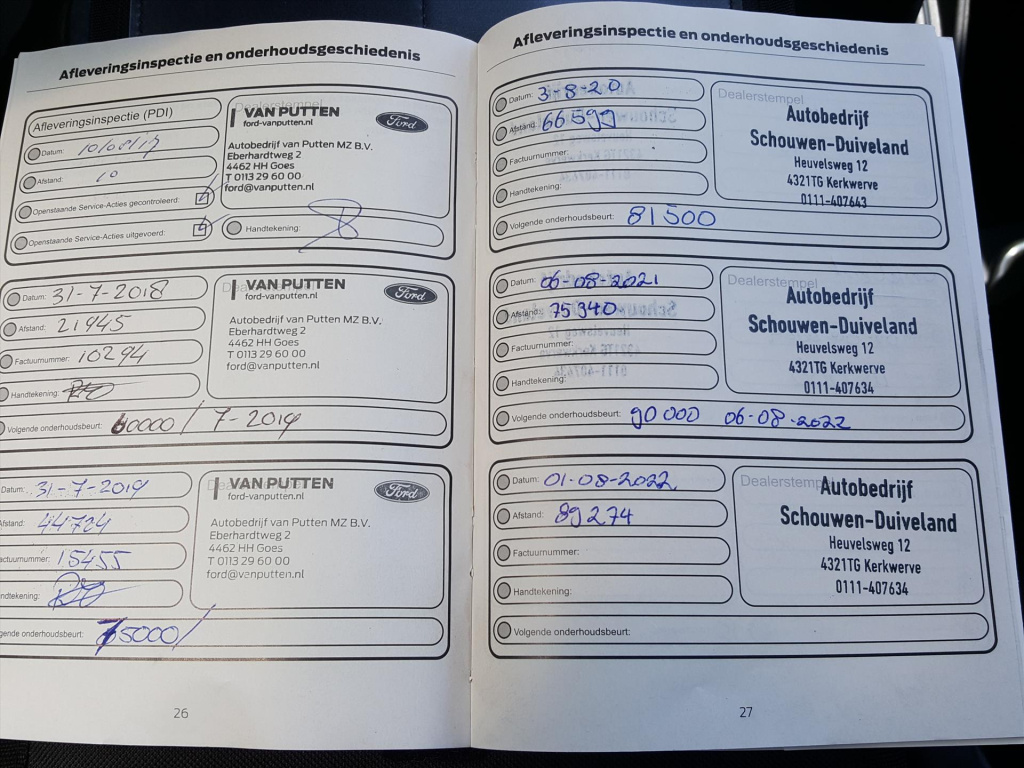 Afleveringsinspectie en onderhoudsgeschiedenis
Afleveringsinspectie (PDI)
Datum:
Afstand: 10
Openstaande Service-Acties gecontroleerd:
Openstaande Service-Acties uitgevoerd:
Dealerstempel
VAN PUTTEN
ford-vanputten.nl
Ford
Autobedrijf van Putten MZ B.V.
Eberhardtweg 2
4462 HH Goes
T 0113 29 60 00
ford@vanputten.nl
Handtekening:
Datum: 31-7-2018
Afstand: 21945
Factuurnummer: 10294
Handtekening:
VAN PUTTEN
ford-vanputten.nl
Ford
Autobedrijf van Putten MZ B.V.
Eberhardtweg 2
4462 HH Goes
T 0113 29 60 00
ford@vanputten.nl
Volgende onderhoudsbeurt: 60000 / 7-2019
Datum: 31-7-2019
Afstand: 44724
Factuurnummer: 15455
Handtekening:
VAN PUTTEN
ford-vanputten.nl
Ford
Autobedrijf van Putten MZ B.V.
Eberhardtweg 2
4462 HH Goes
T 0113 29 60 00
ford@vanputten.nl
gende onderhoudsbeurt: 75000/
26
Afleveringsinspectie en onderhoudsgeschiedenis
Datum: 3-8-20
Afstand: 66599
Factuurnummer:
Handtekening:
Dealerstempel
Autobedrijf
Schouwen-Duiveland
Heuvelsweg 12
4321TG Kerkwerve
0111-407643
Volgende onderhoudsbeurt: 81500
Datum: 06-08-2021
Afstand: 75340
Factuurnummer:
Handtekening:
Dealerstempel
Autobedrijf
Schouwen-Duiveland
Heuvelsweg 12
4321TG Kerkwerve
0111-407634
Volgende onderhoudsbeurt: 90000 06-08-2022
Datum: 01-08-2022
Afstand: 89274
Factuurnummer:
Handtekening:
Dealerstempel
Autobedrijf
Schouwen-Duiveland
Heuvelsweg 12
4321TG Kerkwerve
0111-407634
Volgende onderhoudsbeurt:
27